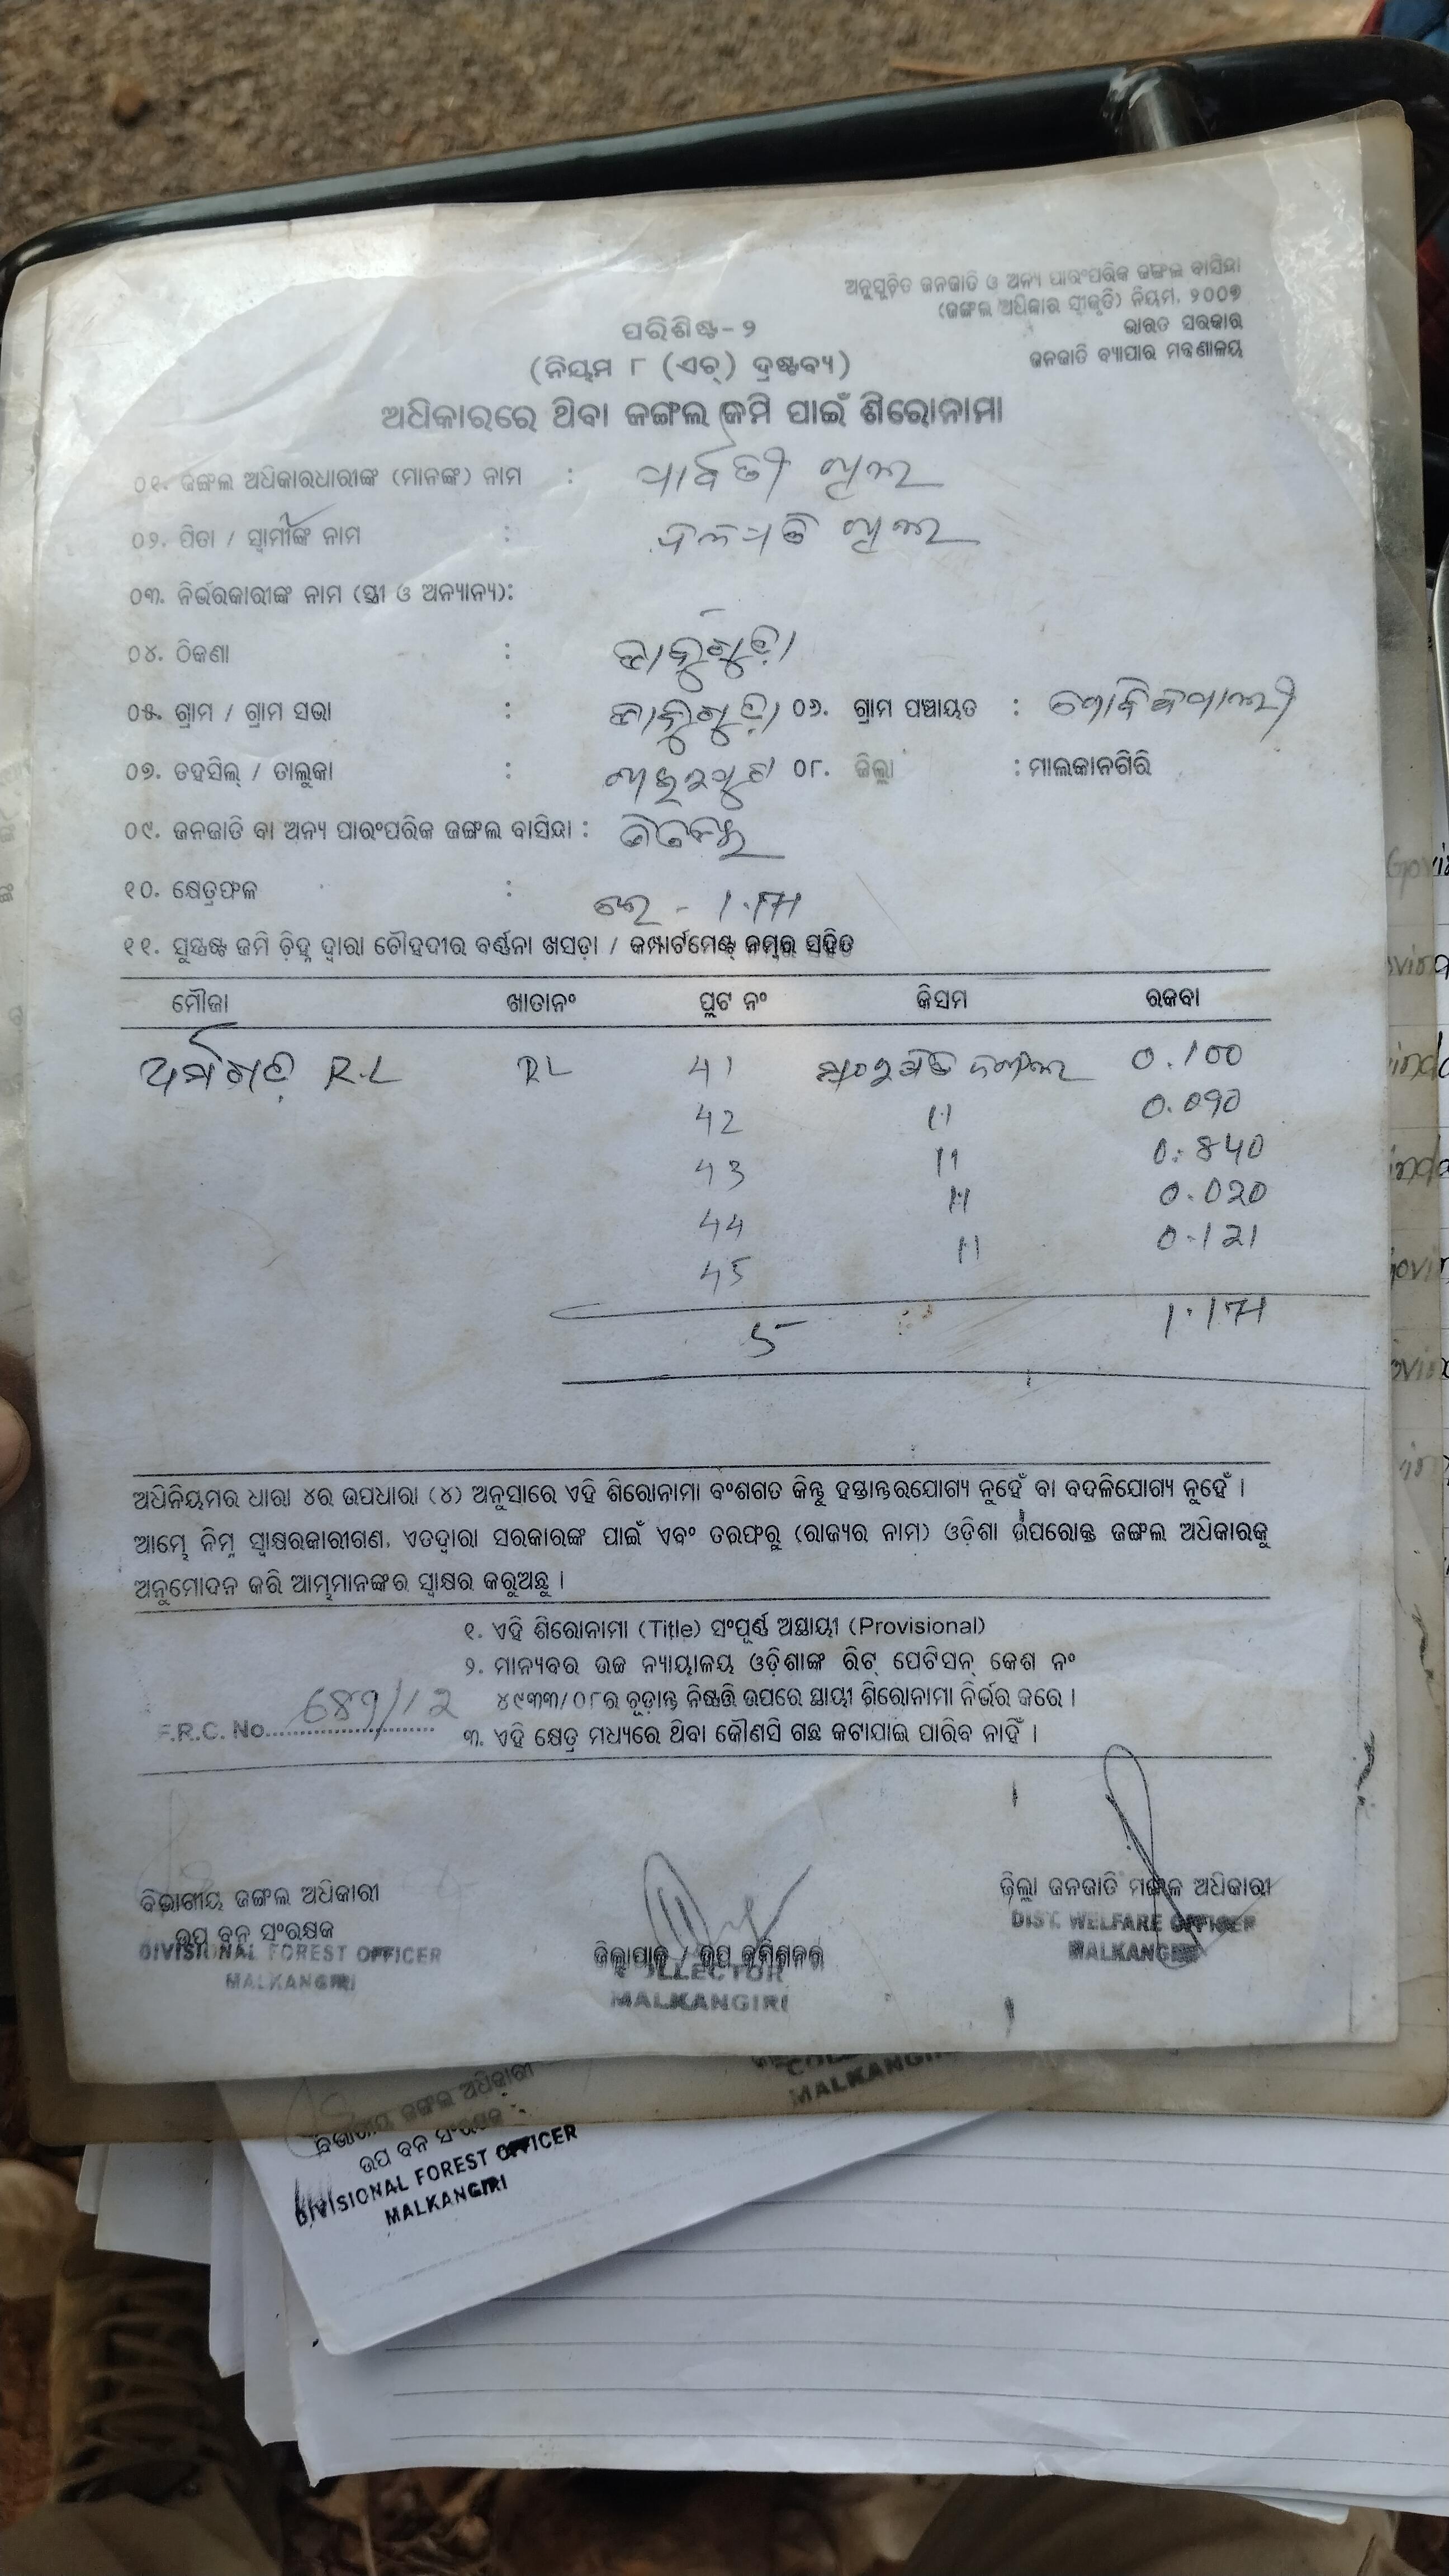 ଅନୁସୂଚିତ ଜନଜାତି ଓ ଅନ୍ୟ ପାରଂପରିକ ଜଙ୍ଗଲ ବାସିନ୍ଦା
(ଜଙ୍ଗଲ ଅଧିକାର ସ୍ୱୀକୃତି) ନିୟମ, ୨୦୦୭
ଭାରତ ସରକାର
ଜନଜାତି ବ୍ୟାପାର ମନ୍ତ୍ରଣାଳୟ
ପରିଶିଷ୍ଟ-୨
(ନିୟମ ୮ (ଏଚ୍) ଦ୍ରଷ୍ଟବ୍ୟ)
ଅଧିକାରରେ ଥିବା ଜଙ୍ଗଲ ଜମି ପାଇଁ ଶିରୋନାମା
୦୧. ଜଙ୍ଗଲ ଅଧିକାରଧାରୀଙ୍କ (ମାନଙ୍କ) ନାମ : ପାର୍ବତୀ
୦୨. ପିତା / ସ୍ୱାମୀଙ୍କ ନାମ :
୦୩. ନିର୍ଭରକାରୀଙ୍କ ନାମ (ସ୍ତ୍ରୀ ଓ ଅନ୍ୟାନ୍ୟ):
୦୪. ଠିକଣା :
୦୫. ଗ୍ରାମ / ଗ୍ରାମ ସଭା : ୦୬. ଗ୍ରାମ ପଞ୍ଚାୟତ : ଗୋବିନ୍ଦପାଲୀ
୦୭. ତହସିଲ୍ / ତାଲୁକା : ୦୮. ଜିଲ୍ଲା : ମାଲକାନଗିରି
୦୯. ଜନଜାତି ବା ଅନ୍ୟ ପାରଂପରିକ ଜଙ୍ଗଲ ବାସିନ୍ଦା :
୧୦. କ୍ଷେତ୍ରଫଳ : 1.171
୧୧. ସୁସ୍ପଷ୍ଟ ଜମି ଚିହ୍ନ ଦ୍ୱାରା ଚୌହଦୀର ବର୍ଣ୍ଣନା ଖସଡ଼ା / କମ୍ପାର୍ଟମେଣ୍ଟ ନମ୍ବର ସହିତ
ମୌଜା ଖାତାନଂ ପ୍ଲଟ ନଂ କିସମ ରକବା
R.L RL 41 0.100
42 11 0.090
43 11 0.840
44 11 0.020
45 11 0.121
5 1.171
ଅଧିନିୟମର ଧାରା ୪ର ଉପଧାରା (୪) ଅନୁସାରେ ଏହି ଶିରୋନାମା ବଂଶଗତ କିନ୍ତୁ ହସ୍ତାନ୍ତରଯୋଗ୍ୟ ନୁହେଁ ବା ବଦଳିଯୋଗ୍ୟ ନୁହେଁ ।
ଆମ୍ଭେ ନିମ୍ନ ସ୍ୱାକ୍ଷରକାରୀଗଣ, ଏତଦ୍ଦ୍ୱାରା ସରକାରଙ୍କ ପାଇଁ ଏବଂ ତରଫରୁ (ରାଜ୍ୟର ନାମ) ଓଡ଼ିଶା ଉପରୋକ୍ତ ଜଙ୍ଗଲ ଅଧିକାରକୁ
ଅନୁମୋଦନ କରି ଆମ୍ଭମାନଙ୍କର ସ୍ୱାକ୍ଷର କରୁଅଛୁ ।
୧. ଏହି ଶିରୋନାମା (Title) ସଂପୂର୍ଣ୍ଣ ଅସ୍ଥାୟୀ (Provisional)
୨. ମାନ୍ୟବର ଉଚ୍ଚ ନ୍ୟାୟାଳୟ ଓଡ଼ିଶାଙ୍କ ରିଟ୍ ପେଟିସନ୍ କେଶ ନଂ
୪୯୩୩/୦୮ର ଚୂଡ଼ାନ୍ତ ନିଷ୍ପତ୍ତି ଉପରେ ସ୍ଥାୟୀ ଶିରୋନାମା ନିର୍ଭର କରେ ।
F.R.C. No. 689/12
୩. ଏହି କ୍ଷେତ୍ର ମଧ୍ୟରେ ଥିବା କୌଣସି ଗଛ କଟାଯାଇ ପାରିବ ନାହିଁ ।
ବିଭାଗୀୟ ଜଙ୍ଗଲ ଅଧିକାରୀ
ଉପ ବନ ସଂରକ୍ଷକ
DIVISIONAL FOREST OFFICER
MALKANGIRI
ଜିଲ୍ଲାପାଳ / ଉପ କମିଶନର
COLLECTOR
MALKANGIRI
ଜିଲ୍ଲା ଜନଜାତି ମଙ୍ଗଳ ଅଧିକାରୀ
DIST. WELFARE OFFICER
MALKANGIRI
MALKANGIRI
ବିଭାଗୀୟ ଜଙ୍ଗଲ ଅଧିକାରୀ
ଉପ ବନ ସଂରକ୍ଷକ
DIVISIONAL FOREST OFFICER
MALKANGIRI